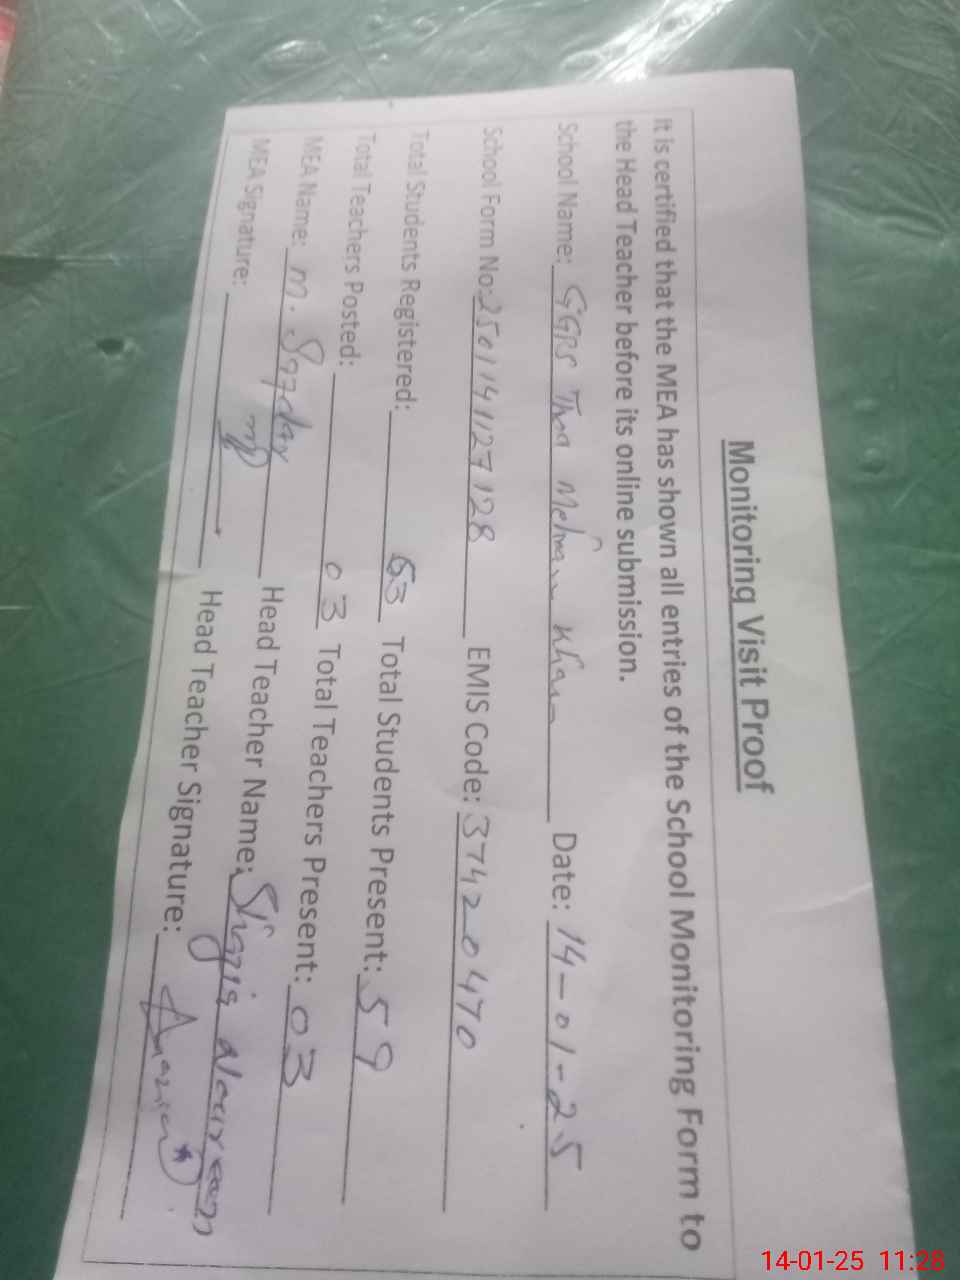 Monitoring Visit Proof
It is certified that the MEA has shown all entries of the School Monitoring Form to
the Head Teacher before its online submission.
School Name: GGPS Khan Date: 14-01-25
School Form No: 250114127128 EMIS Code: 37420470
Total Students Registered: 63 Total Students Present: 59
Total Teachers Posted: 03 Total Teachers Present: 03
MEA Name: M. Head Teacher Name: Shazia
MEA Signature: Head Teacher Signature:
14-01-25 11:28